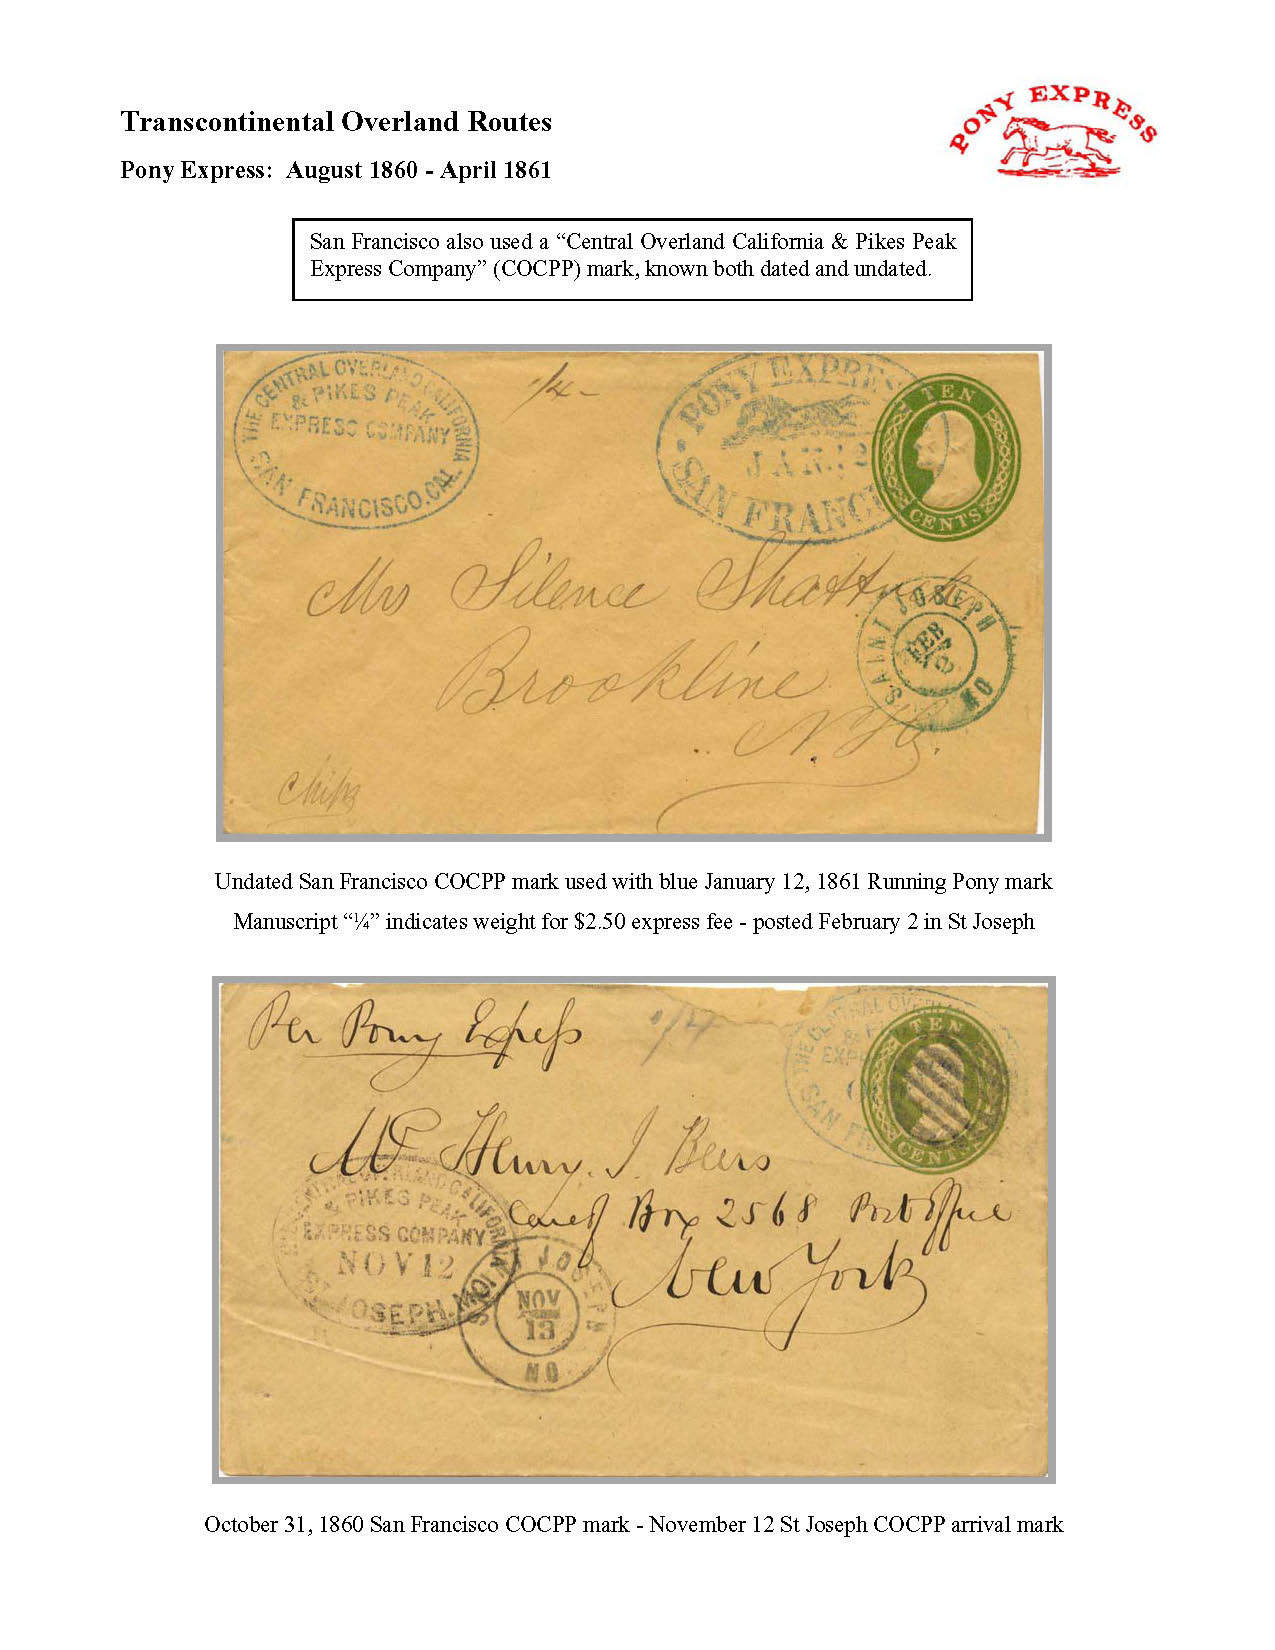 Transcontinental Overland Routes
PONY EXPRESS
Pony Express: August 1860 - April 1861
San Francisco also used a “Central Overland California & Pikes Peak
Express Company” (COCPP) mark, known both dated and undated.
THE CENTRAL OVERLAND CALIFORNIA
& PIKES PEAK
EXPRESS COMPANY
SAN FRANCISCO. CAL
1/4 -
PONY EXPRES
JAN. 12
SAN FRANCI
TEN
CENTS
Mrs Silence Shattuck
Brookline
N. H.
SAINT JOSEPH
FEB
2
MO
Undated San Francisco COCPP mark used with blue January 12, 1861 Running Pony mark
Manuscript “¼” indicates weight for $2.50 express fee - posted February 2 in St Joseph
Per Pony Express
1/4
THE CENTRAL OVER
EXP
SAN FR
TEN
CENTS
Mr Henry. J. Beers
Care of Box 2568 Post Office
New York
NTRAL OVERLAND CALIFORNIA
& PIKES PEAK
EXPRESS COMPANY
NOV 12
ST. JOSEPH. MO.
SAINT JOSEPH
NOV
13
MO
October 31, 1860 San Francisco COCPP mark - November 12 St Joseph COCPP arrival mark